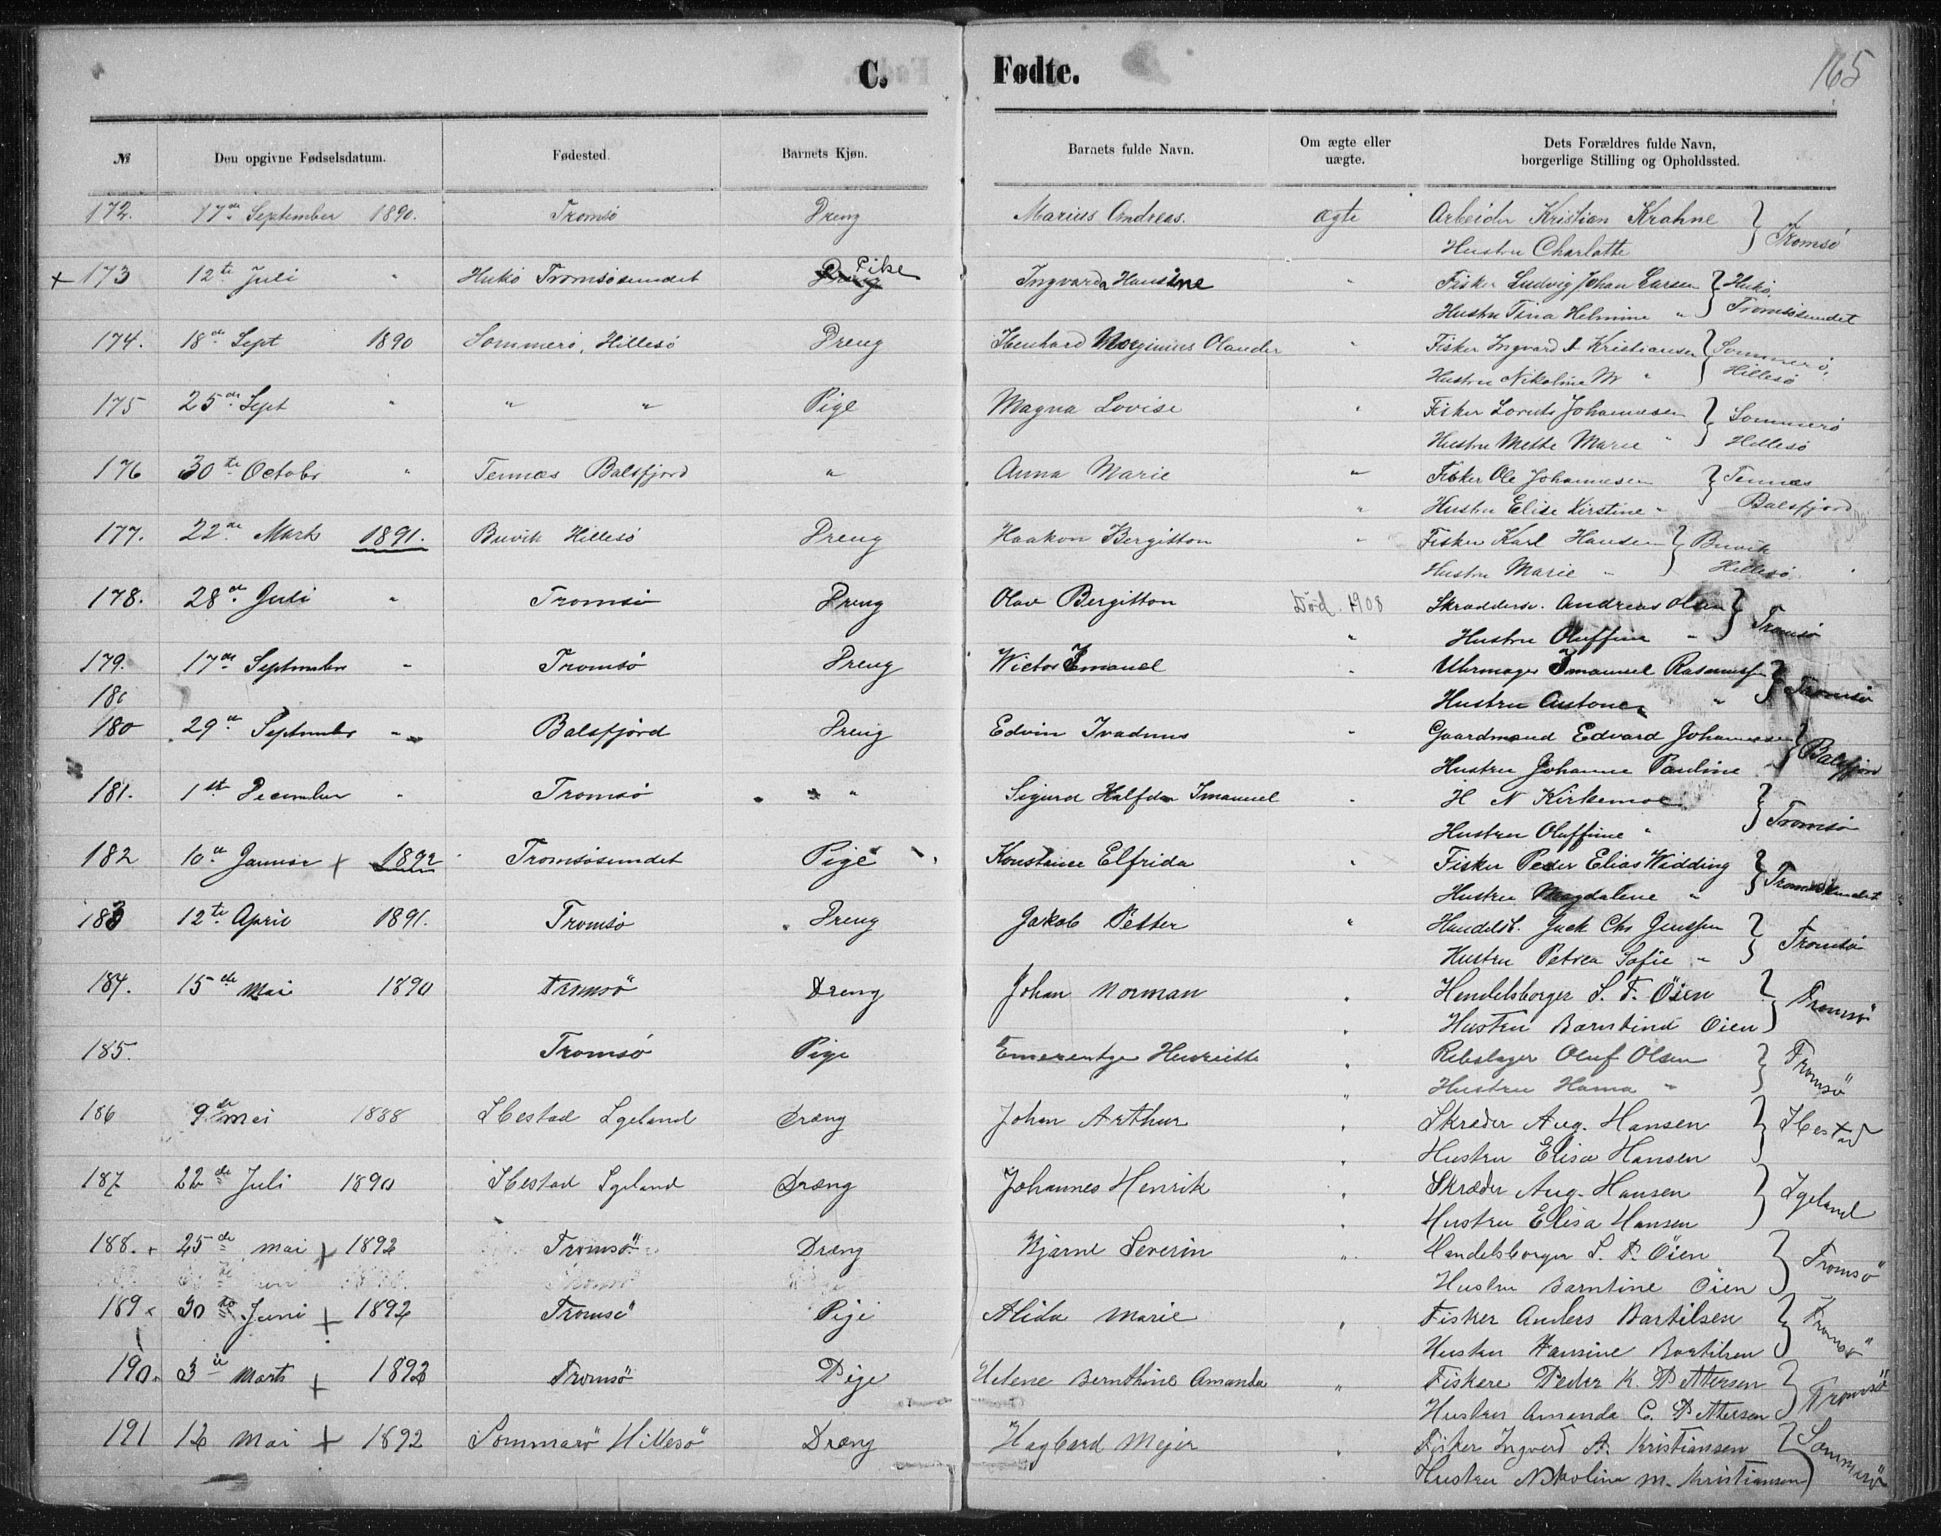 C. Fødte. 165
№ Den opgivne Fødselsdatum. Fødested. Barnets Kjøn. Barnets fulde Navn. Om ægte eller uægte. Dets Forældres fulde Navn, borgerlige Stilling og Opholdssted.
172. 17de September 1890. Tromsø Dreng Marius Andreas. ægte Arbeider Kristian Krahne } Tromsø
Hustru Charlotte
+ 173 12te Juli " Hukø Tromsøsundet Dreng Pike Ingvarda Hansine " Fisker Ludvig Johan Larsen } Hukø,
Hustru Tina Helmine " Tromsøsundet
174. 18de Sept 1890 Sommerø, Hillesø Dreng Olander " Fisker Ingvard A Kristiansen } Sommerø,
Hustru Nikoline M " Hillesø
175 25de Sept " " " Pige Magna Lovise " Fisker Lorents Johannesen } Sommerø
Hustru Mette Marie " Hillesø
176 30te Octobr " Tennæs Balsfjord " Anna Marie " Fisker Ole Johannesen } Tennæs
" Hustru Elise Kirstine " Balsfjord
177. 22de Marts 1891. Buvik Hillesø Dreng Haakon Bergitton " Fisker Karl Hansen } Buvik
Hustru Marie " Hillesø.
178. 28de Juli " Tromsø Dreng Olav Bergitton Død. 1908 Skræddersv. Andreas Olsen } Tromsø
" Hustru Oluffine "
179. 17de September " Tromsø Dreng Wictor Imanuel " Uhrmager Imanuel Rasmussen } Tromsø
180 Hustru Antone "
180 29de September " Balsfjord Dreng Edvin Ivadnus " Gaardmand Edvard Johannesen } Balsfjord
Hustru Johanne Pauline "
181. 1ste December " Tromsø " " Sigurd Halfdan Imanuel " H N Kirkemoe } Tromsø
Hustru Oluffine "
182 10de Januar + 1892 Tromsøsundet Pige Konstance Elfrida " Fisker Peder Elias Widding } Tromsøsundet
Hustru Magdalene "
183 12te April 1891. Tromsø Dreng Jakob Petter " Handelsb. Jack Chr Jenssen } Tromsø
Hustru Petrea Sofie "
184. 15de Mai 1890 Tromsö Dreng Johan Norman " Handelsborger S. T. Öien } Tromsö
" Hustru Barntind Öien
185. Tromsø Pige Emerentze Henriette " Rebslager Oluf Olsen } Tromsö
" Hustru Hanna "
186 9de Mai 1888 Ibestad Igeland Dræng Johan Arthur " Skræder Aug. Hansen } Ibestad
Hustru Elisa Hansen
187 22de Juli 1890 Ibestad Igeland Dræng Johannes Henrik " Skræder Aug. Hansen } Igeland
" Hustru Elisa Hansen
188. + 25de Mai + 1892 Tromsö Dræng Bjarne Severin " Handelsborger S. T. Öien } Tromsö
Hustru Barntine Öien
189 × 30te Juni + 1892 Tromsö Pige Alida Marie " Fisker Anders Bartilsen } Tromsö
Hustru Hansine Bartilsen
190. 3de Marts + 1892 Tromsö Pige Helene Bernthine Amanda " Fiskere Peder K. Pettersen } Tromsö
Hustru Amanda C. Pettersen
191 12 Mai + 1892 Sommarö Hillesö Dræng Hagbard Mejer " Fisker Ingverd A. Kristiansen } Sommarö
Hustru Nikolina M. Kristiansen